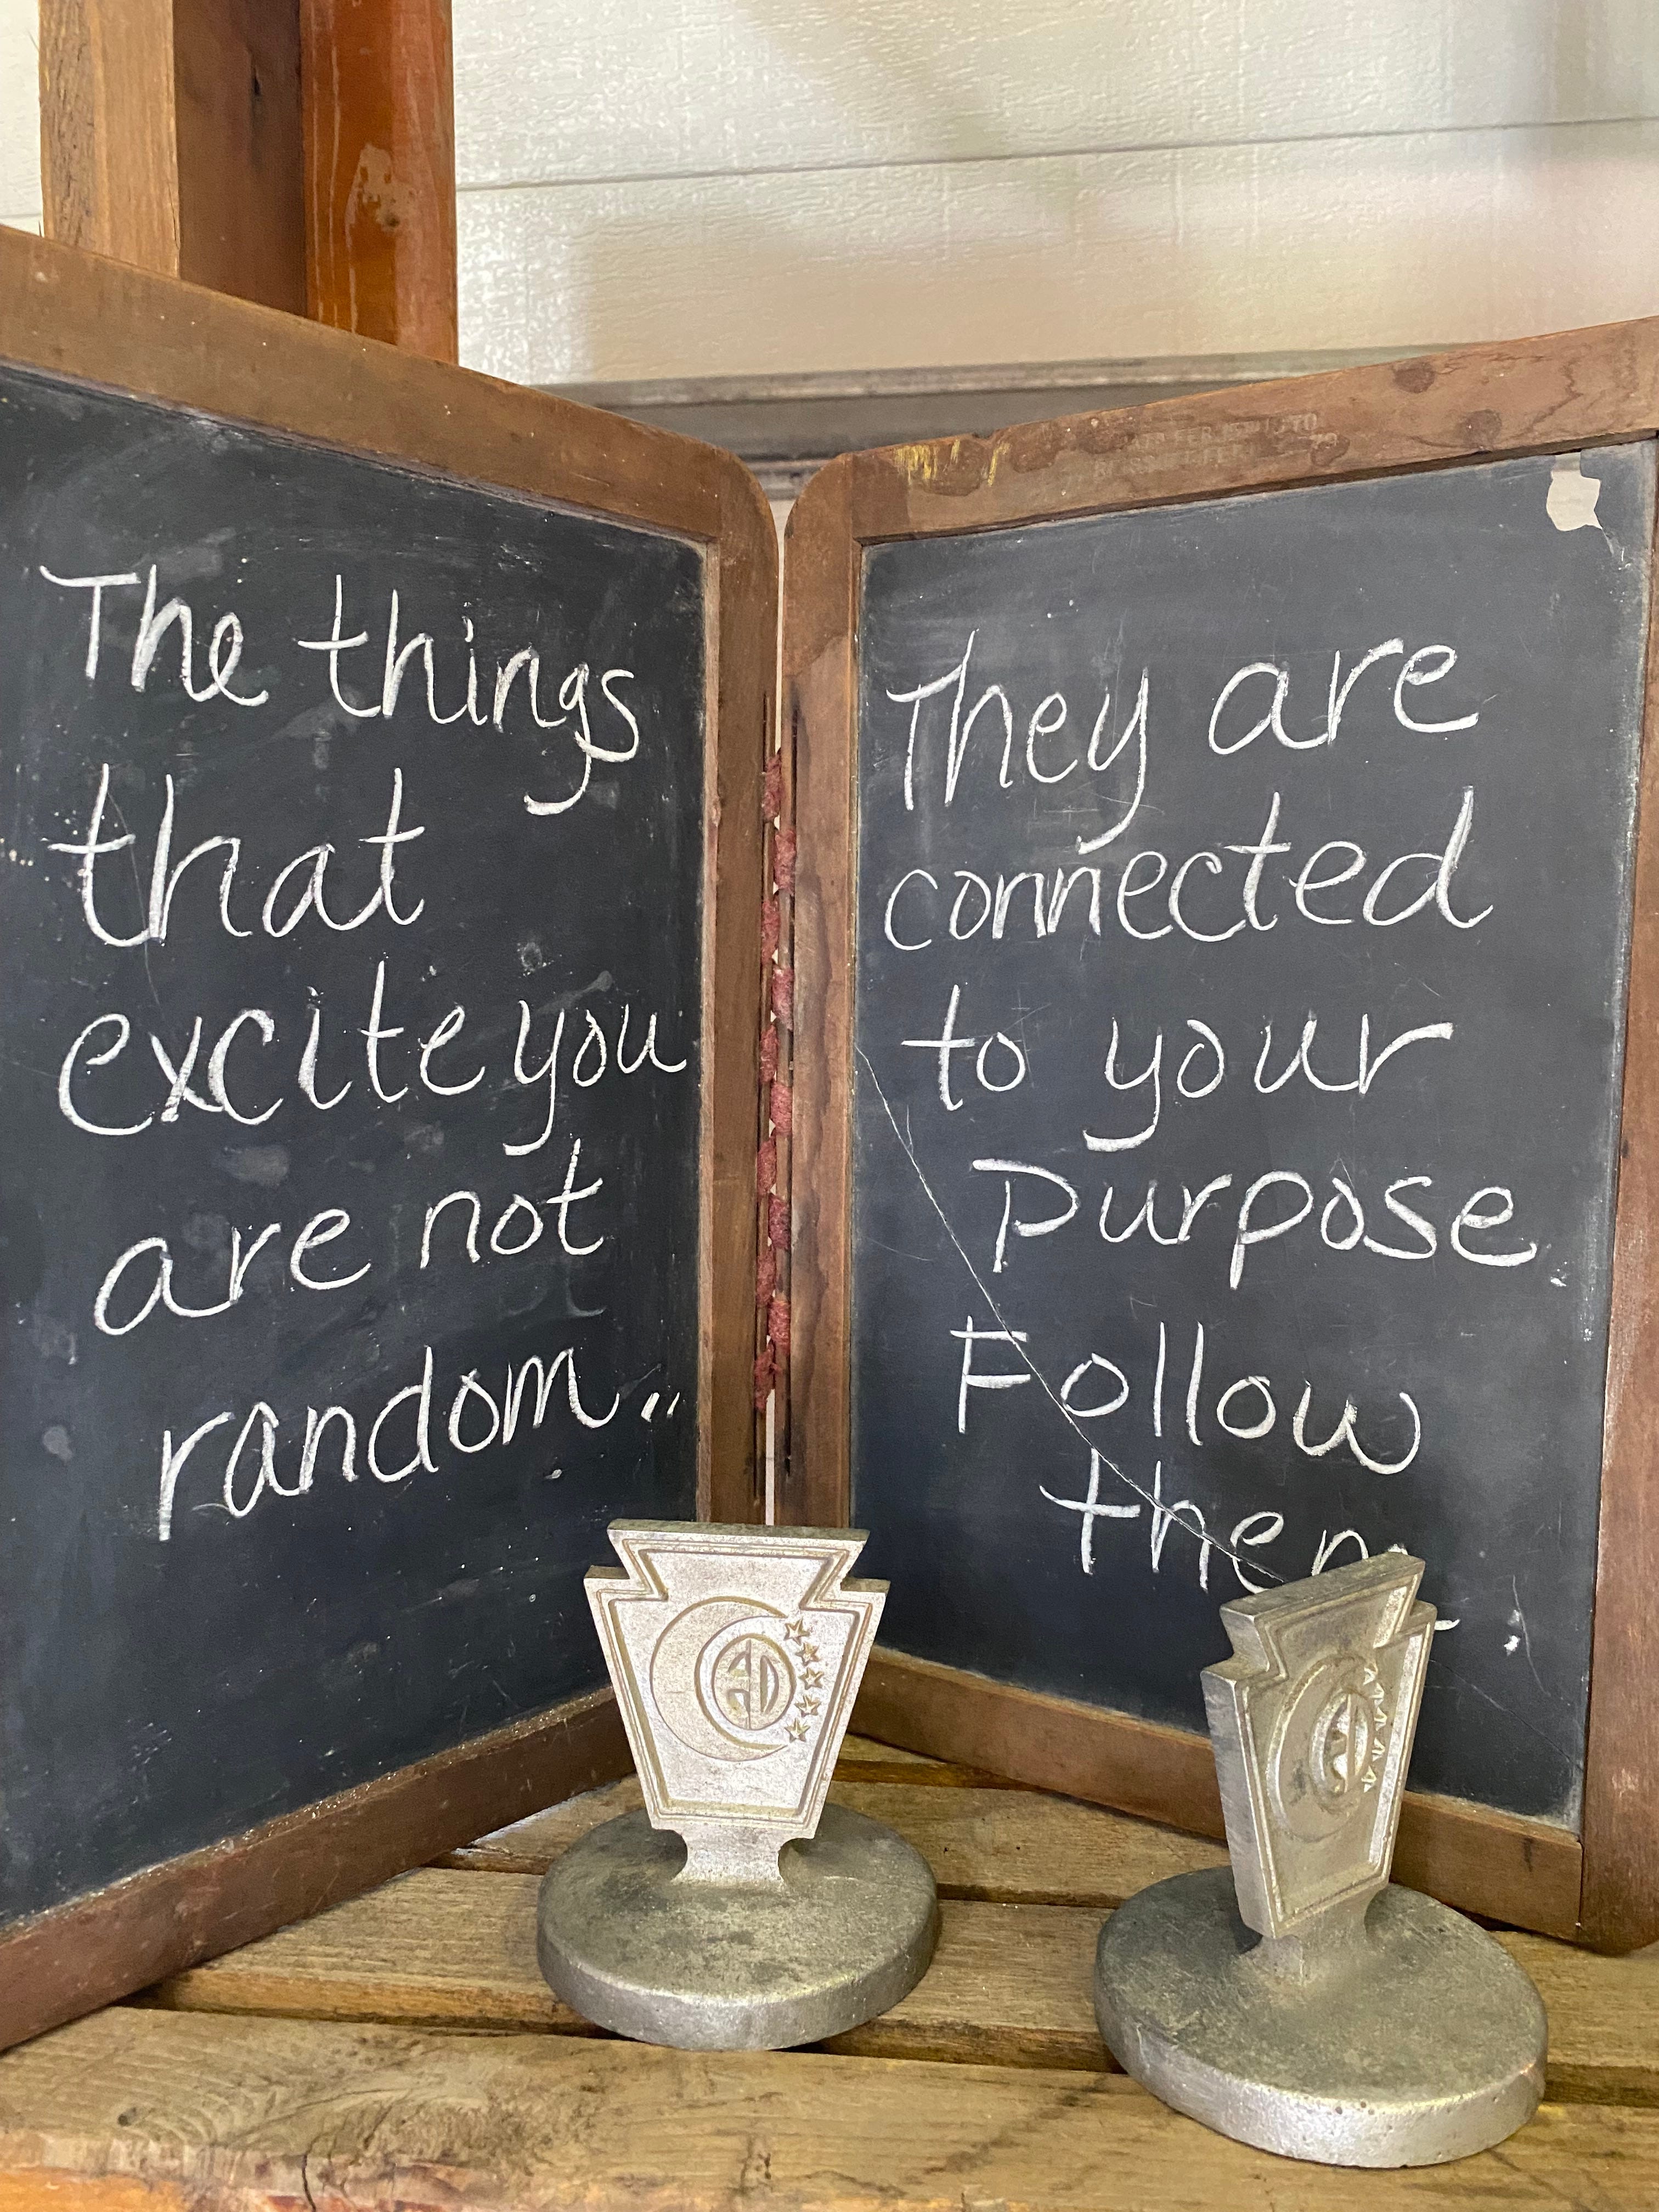 The things
that
excite you
are not
random..
They are
connected
to your
Purpose.
Follow
them
AD